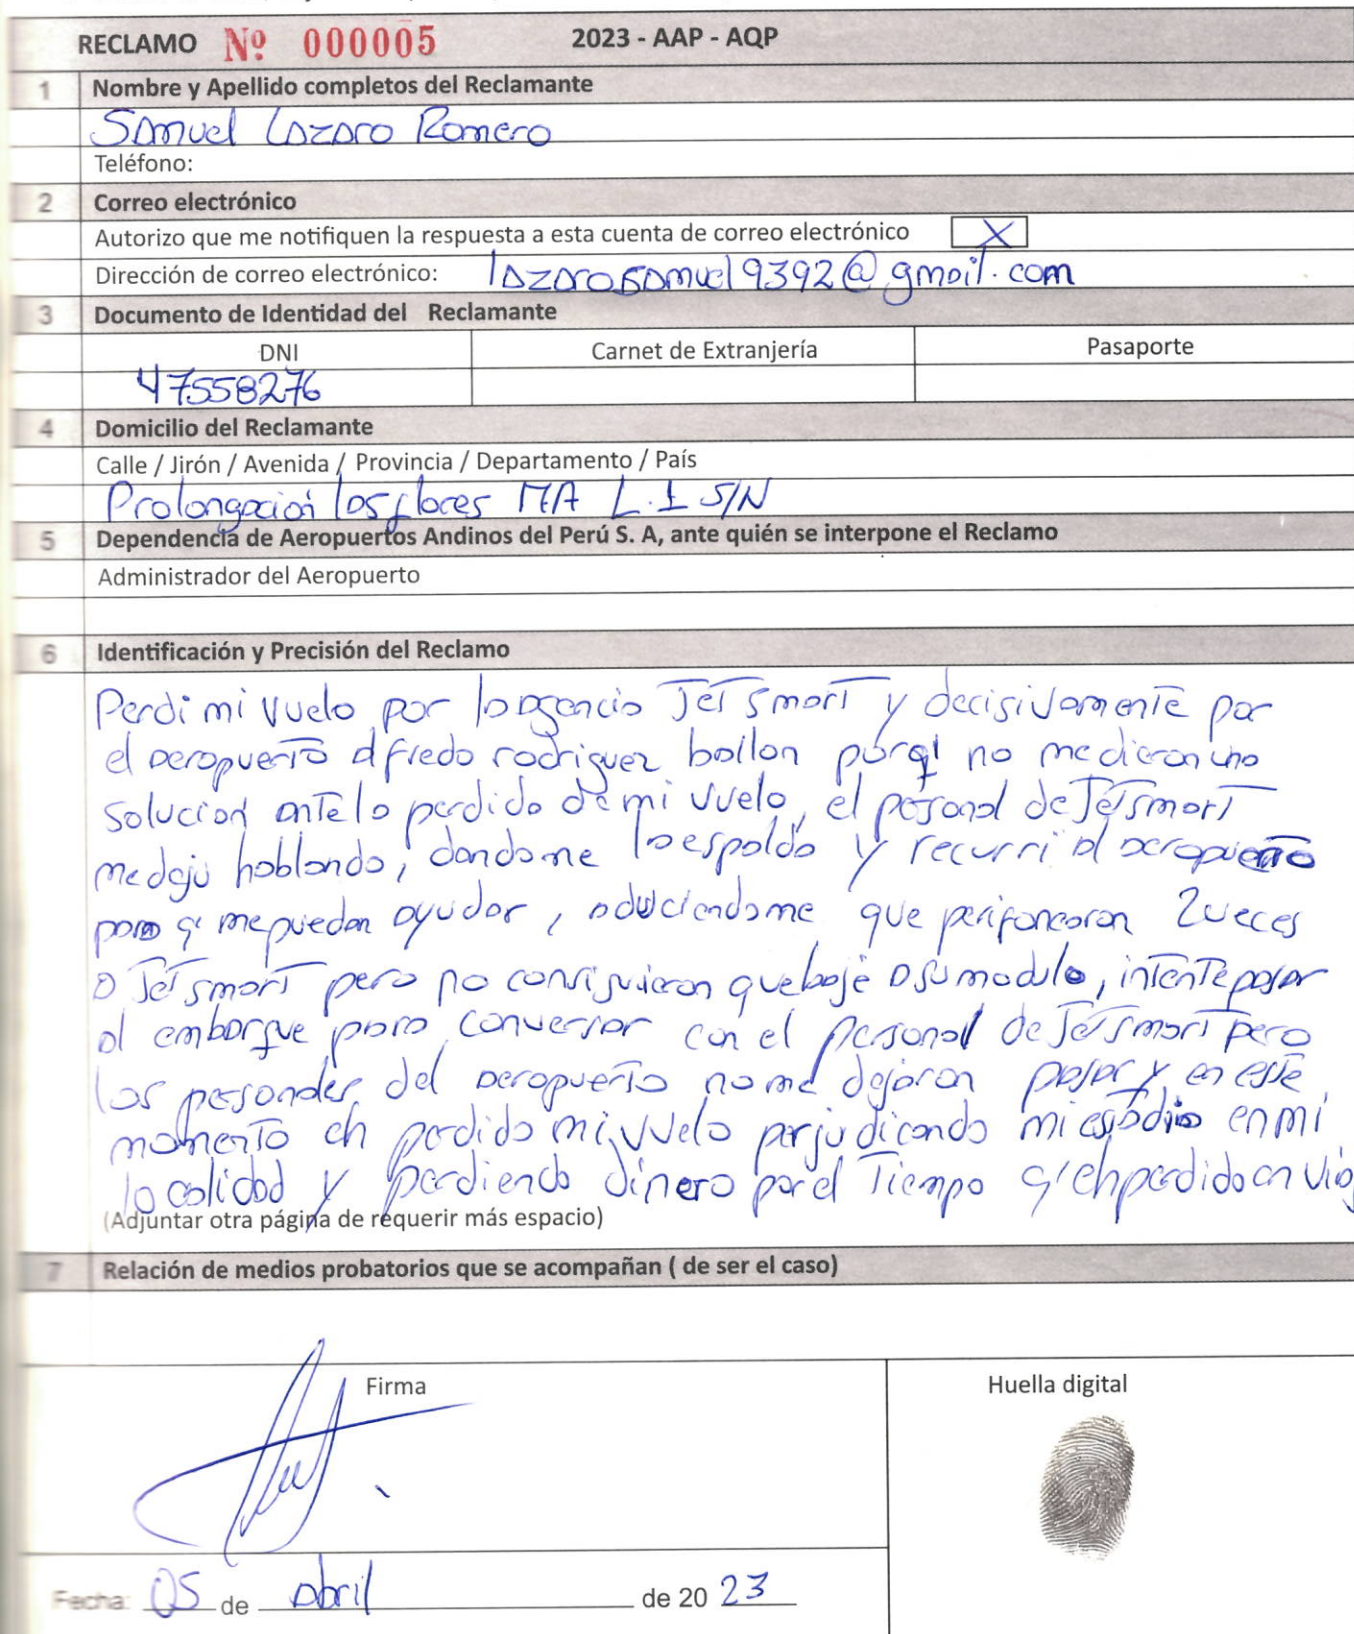 RECLAMO Nº 000005 2023 - AAP - AQP
1 Nombre y Apellido completos del Reclamante
Samuel Lazaro Romero
Teléfono:
2 Correo electrónico
Autorizo que me notifiquen la respuesta a esta cuenta de correo electrónico X
Dirección de correo electrónico: lazarosamuel9392@gmail.com
3 Documento de Identidad del Reclamante
DNI Carnet de Extranjería Pasaporte
47558276
4 Domicilio del Reclamante
Calle / Jirón / Avenida / Provincia / Departamento / País
Prolongación las flores MA L.1 S/N
5 Dependencia de Aeropuertos Andinos del Perú S. A, ante quién se interpone el Reclamo
Administrador del Aeropuerto
6 Identificación y Precisión del Reclamo
Perdi mi vuelo por la agencia Jet Smart y decisivamente por
el aeropuerto alfredo rodriguez ballon porq' no me dieron una
solución ante lo perdido de mi vuelo, el pesonal de Jet smart
me dejó hablando, dandome la espalda y recurri al aeropuerto
para q' me puedan ayudar, aduciendome que perifonearon 2 veces
a Jet smart pero no consiguieron que baje a su modulo, intente pasar
al embarque para conversar con el personal de Jet smart pero
los pesonales del aeropuerto no me dejaron pasar y en este
momento eh perdido mi vuelo perjudicando mi en mi
localidad y perdiendo dinero por el tiempo q' eh perdido en
(Adjuntar otra página de requerir más espacio)
7 Relación de medios probatorios que se acompañan ( de ser el caso)
Firma Huella digital
Fecha: 05 de abril de 20 23